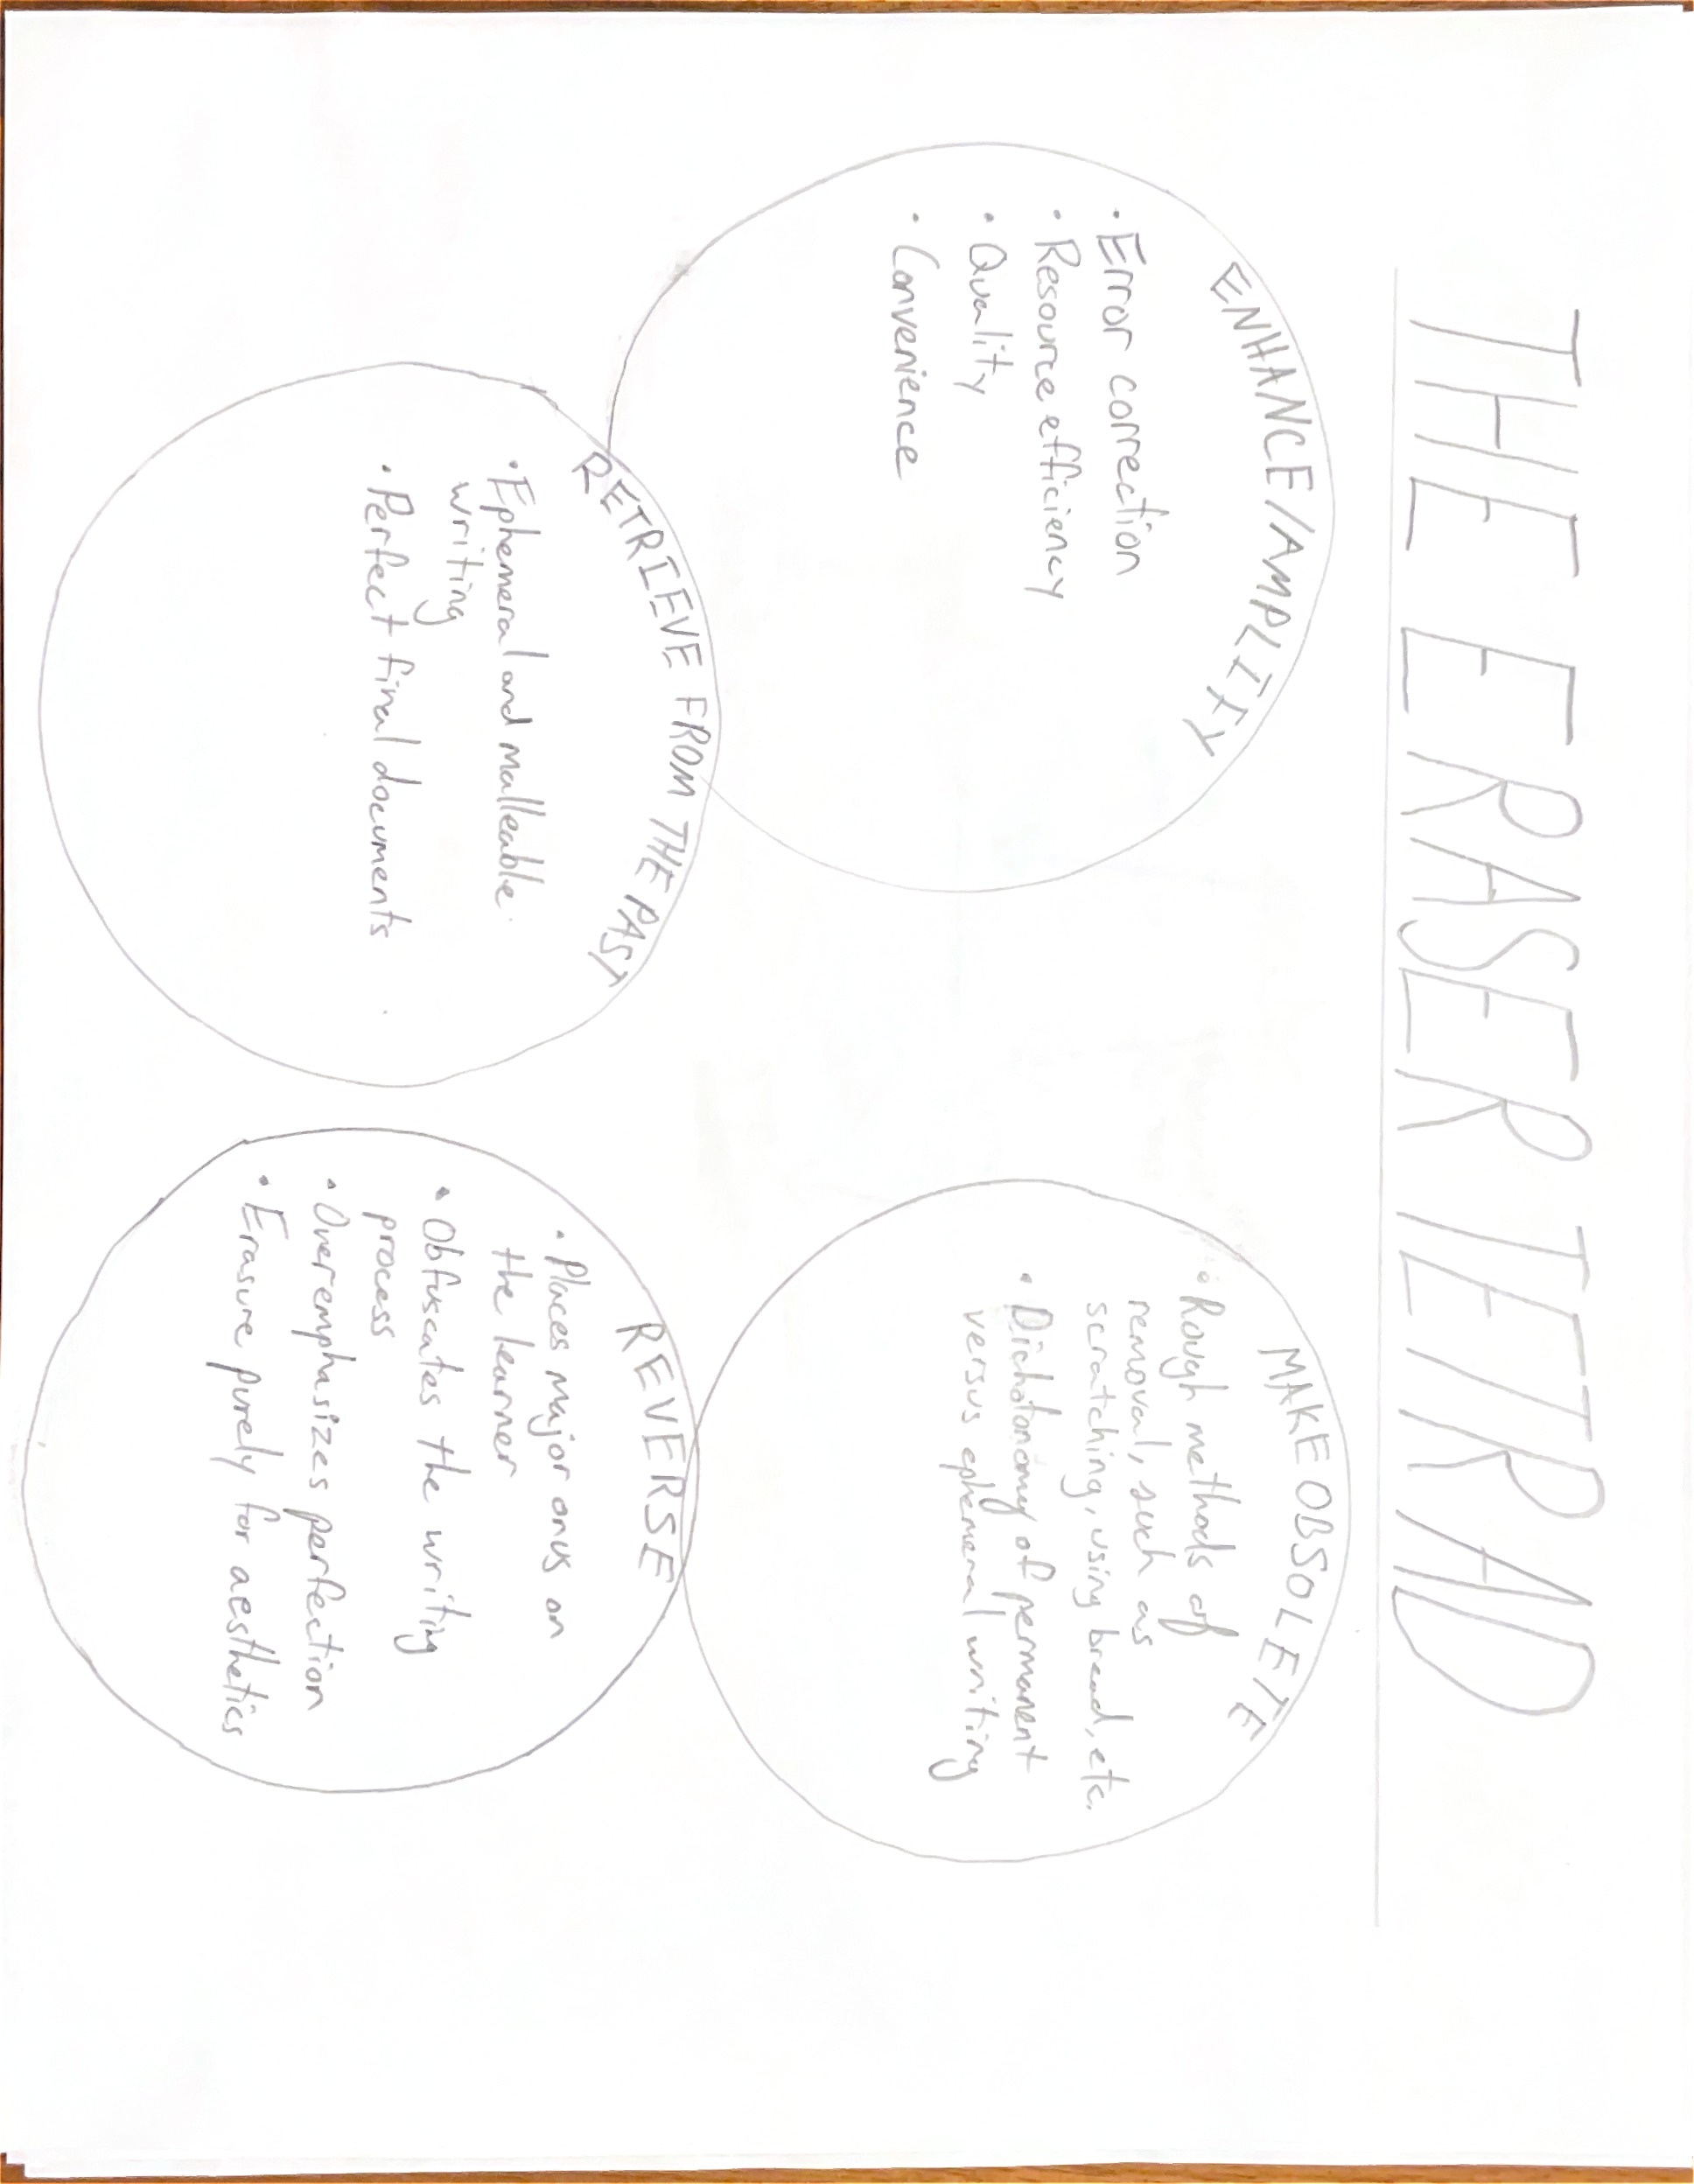 THE ERASER TETRAD
ENHANCE/AMPLIFY
• Error correction
• Resource efficiency
• Quality
• Convenience
MAKE OBSOLETE
• Rough methods of
removal, such as
scratching, using bread, etc.
• Dichotonomy of permanent
versus ephemeral writing
RETRIEVE FROM THE PAST
• Ephemeral and malleable
writing
• Perfect final documents
REVERSE
• Places major onus on
the learner
• Obfuscates the writing
process
• Overemphasizes perfection
• Erasure purely for aesthetics